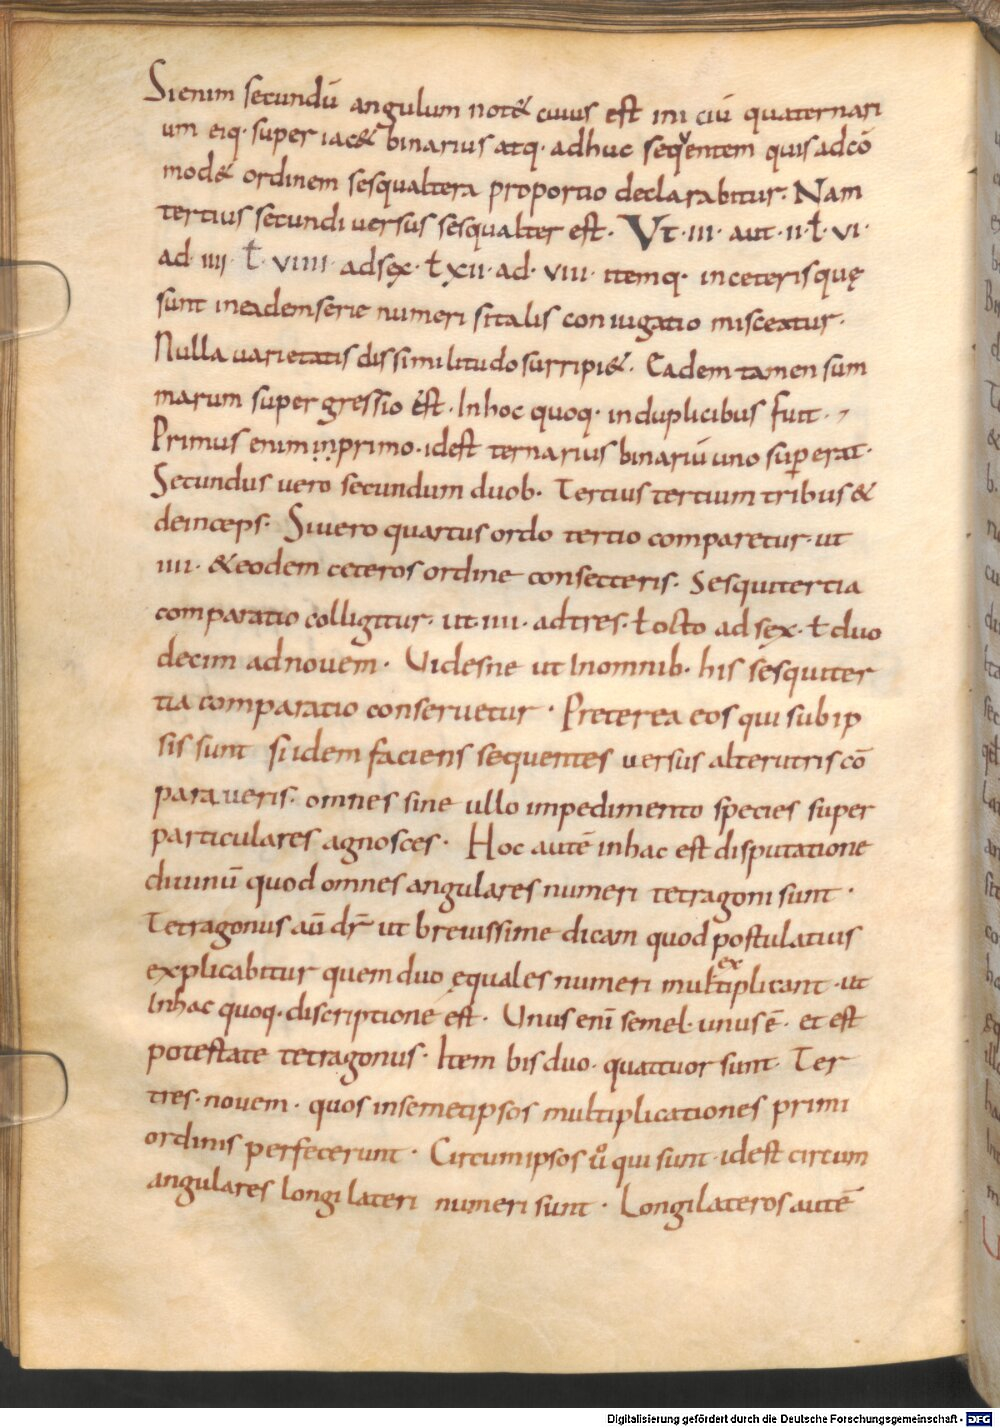 Si enim secundū angulum not& cuius est in i ciū quaternari
um eiq· super iac& binarius atq· adhuc sequentem quis adcō
mod& ordinem sesqualtera proportio declarabitur· Nam
tertius secundi versus sesqualter est· Ut ·iii· aut ·ii· ł ·vi·
ad· iiii· ł· viiii· ad sex· ł xii· ad· viii· itemq· in ceteris quę
sunt in eadem serie numeri si talis coniugatio misceatur·
Nulla varietatis dissimilitudo surripi&· Eadem tamen sum
marum super gressio est· In hoc quoq· in duplicibus fuit·
Primus enim in primo· idest ternarius binariū uno superat·
Secundus vero secundum duob· Tertius tertium tribus &
deinceps· Si vero quartus ordo tertio comparetur· ut
iiii· & eodem ceteros ordine consecteris· Sesquitertia
comparatio colligitur· ut ·iiii· ad tres· ł octo ad sex· ł duo
decim ad novem· Videsne ut in omnib· his sesquiter
tia comparatio conservetur· Preterea eos qui sub ip
sis sunt si idem faciens sequentes versus alterutris cō
paraveris· omnes sine ullo impedimento species super
particulares agnosces· Hoc autē in hac est disputatione
divinū quod omnes angulares numeri tetragoni sunt·
Tetragonus aū dr̄ ut brevissime dicam quod post latius
explicabitur quem duo equales numeri multiplicant· ut
ex
In hac quoq· discriptione est· Unus enī semel· unus ē· et est
potestate tetragonus· Item bis duo· quattuor sunt· Ter
tres· novem· quos in semetipsos multiplicationes primi
ordinis perfecerunt· Circum ipsos ū qui sunt· idest circum
angulares longilateri numeri sunt· Longilateros autē
Digitalisierung gefördert durch die Deutsche Forschungsgemeinschaft - DFG